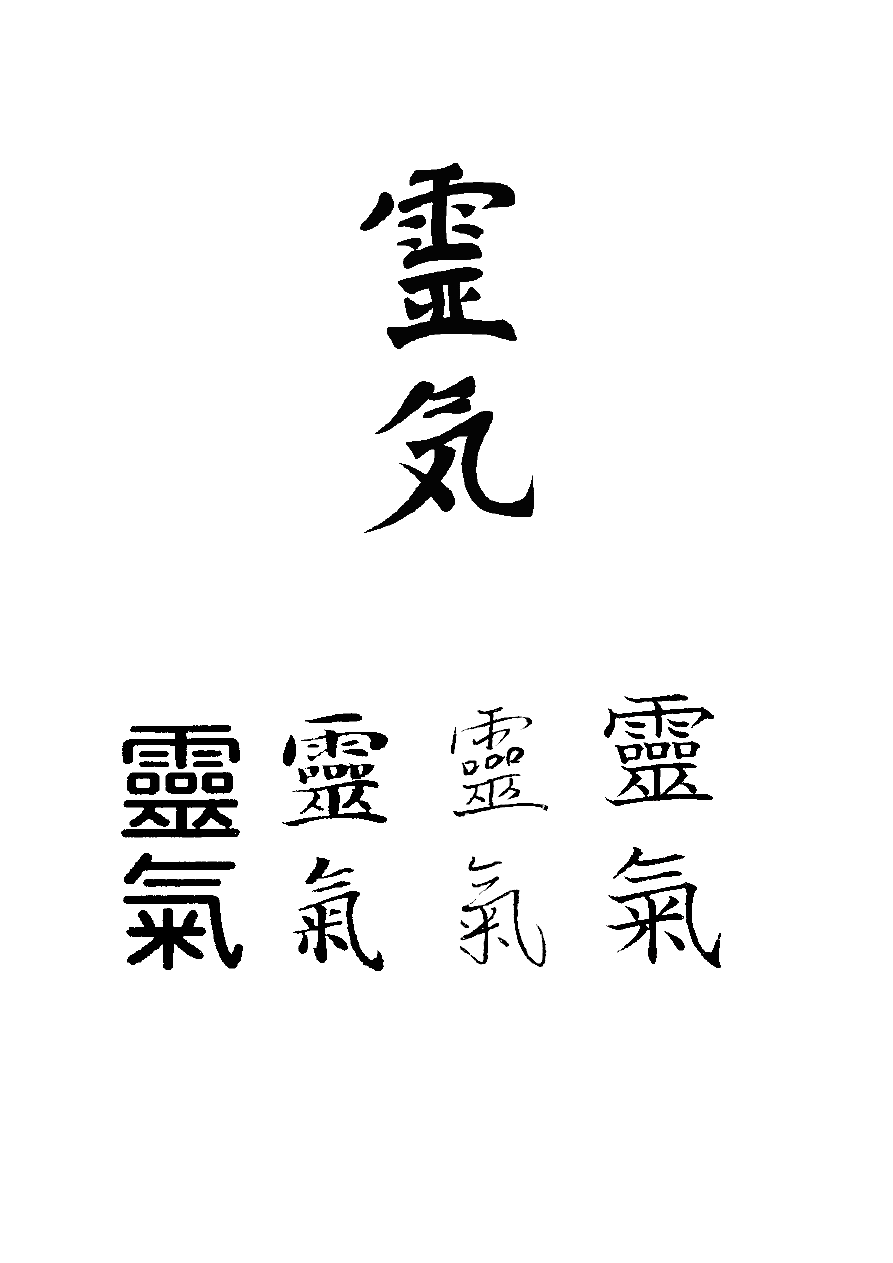 靈気
靈氣
靈氣
靈氣
靈氣